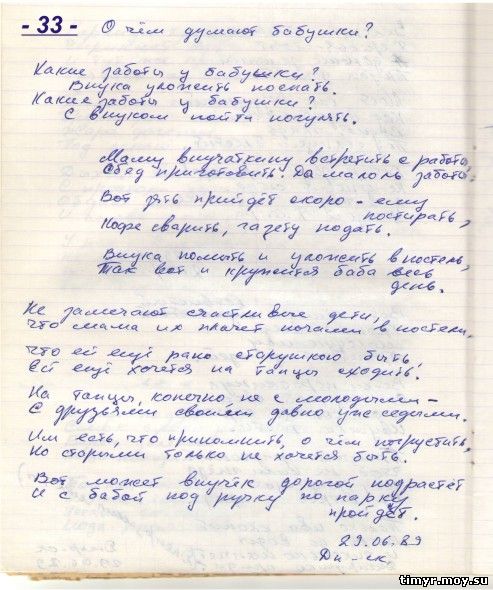 - 33 -
О чём думают бабушки?
Какие заботы у бабушки?
Внука уложить поспать.
Какие заботы у бабушки?
С внуком пойти погулять.
Маму внучаткину встретить с работы,
Обед приготовить. Да мало ль заботы.
Вот зять прийдёт скоро - ему
постирать,
Кофе сварить, газету подать.
Внука помыть и уложить в постель,
Так вот и кружится баба весь
день.
Не замечают счастливые дети,
Что мама их плачет ночами в постели.
Что ей ещё рано старушкою быть,
Ей ещё хочется на танцы сходить!
На танцы, конечно не с молодыми -
С друзьями своими давно уже седыми.
Им есть, что припомнить, о чём погрустить,
Но старыми только не хочется быть.
Вот может внучек дорогой подрастёт
И с бабой под ручку по парку
пройдёт.
29.06.89
Ди-ск.
timyr.moy.su